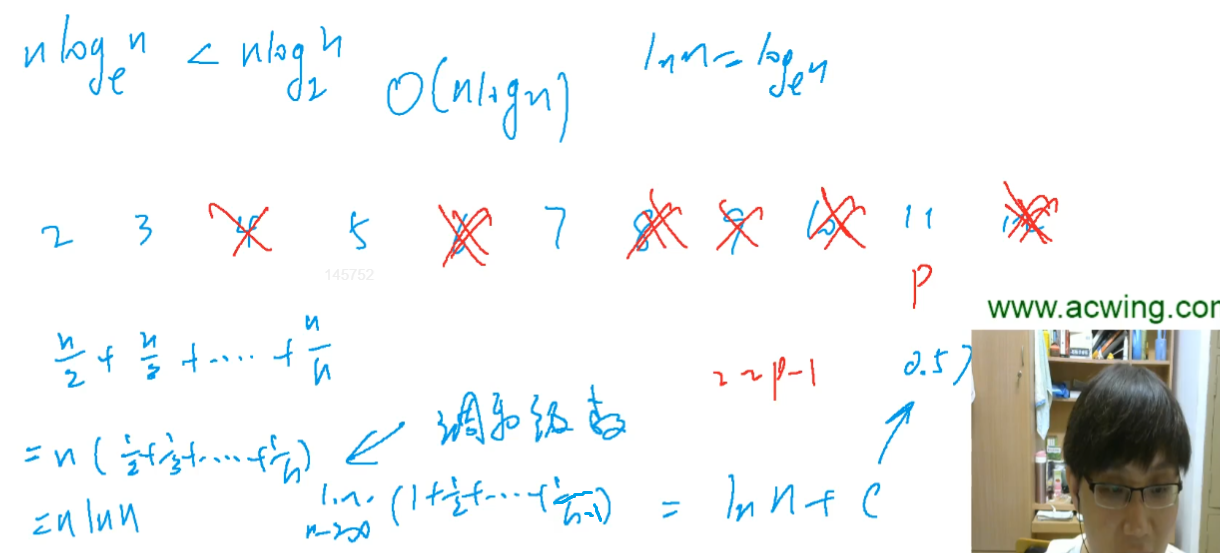 n logₑ n < n log₂ n
O(n log n)
ln n = logₑ n
2 3 4 5 6 7 8 9 10 11 12
145752
p
www.acwing.cor
n/2 + n/3 + .... + n/n
2 ~ p-1
0.57
= n ( 1/2 + 1/3 + .... + 1/n )
← 调和级数
= n ln n
lim n->∞ ( 1 + 1/2 + .... + 1/(n-1) ) = ln n + C